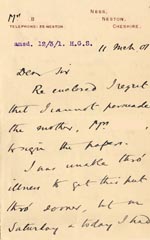 Mrs
NESS,
NESTON,
CHESHIRE.
TELEPHONE: 
ansd. 12/3/1. H.G.S.
11 March 01
Dear Sir
Re enclosed I regret
that I cannot persuade
the mother, Mrs
to sign the papers.
I was unable thro'
illness to get this put
thro' sooner, but on
Saturday & today I had